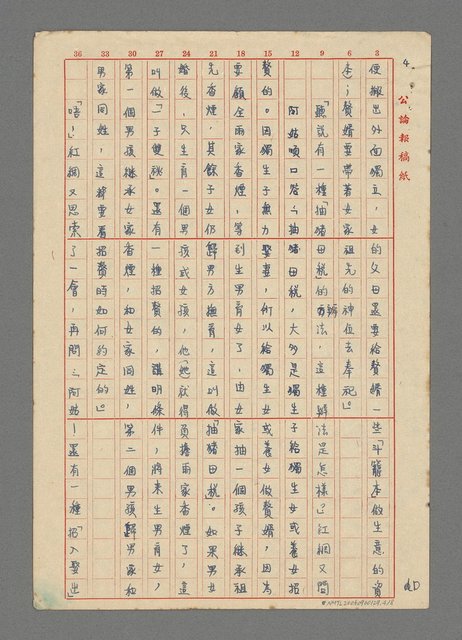 4.
公論報稿紙
便搬出外面獨立，女的父母還要給贅婿一些「斗籠本」做生意的資
本；贅婿要帶著女家祖先的神位去奉祀」。
「聽說有一種「抽豬母稅」的辦法，這種辦法是怎樣？」紅綢又問
阿姑順口答：「抽豬母稅，大多是獨生子給獨生女或養女招
贅的。因獨生子無力娶妻，所以給獨生女或養女做贅婿，因為
要顧全兩家香煙，等到生男育女了，由女家抽一個孩子繼承祖
先香煙，其餘子女仍歸男方撫育，這叫做「抽豬母稅」。如果男女
婚後，只生育一個男孩或女孩，他（她）就得負擔兩家香煙了，這
叫做「一子雙祧」。還有一種招贅的，講明條件，將來生男育女，
第一個男孩繼承女家香煙，和女家同姓，第二個男孩歸男家和
男家同姓，這將要看招贅時如何約定的」。
「唔！」紅綢又思索了一會，再問：「阿姑！還有一種「招入娶出」
3
6
9
12
15
18
21
24
27
30
33
36